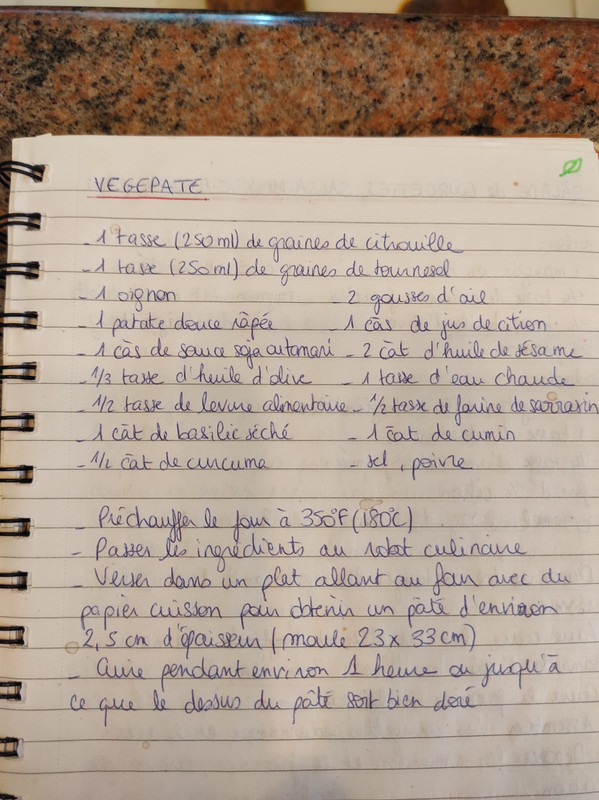 VEGEPATE
- 1 tasse (250ml) de graines de citrouille
- 1 tasse (250ml) de graines de tournesol
- 1 oignon - 2 gousses d'ail
- 1 patate douce râpée - 1 càs de jus de citron
- 1 càs de sauce soja ou tamari - 2 càt d'huile de sésame
- 1/3 tasse d'huile d'olive - 1 tasse d'eau chaude
- 1/2 tasse de levure alimentaire - 1/2 tasse de farine de sarrasin
- 1 càt de basilic séché - 1 càt de cumin
- 1/2 càt de curcuma - sel, poivre
- Préchauffer le four à 350°F (180°C)
- Passer les ingrédients au robot culinaire
- Verser dans un plat allant au four avec du
papier cuisson pour obtenir un pâté d'environ
2,5 cm d'épaisseur (moule 23 x 33 cm)
- Cuire pendant environ 1 heure ou jusqu'à
ce que le dessus du pâté soit bien doré